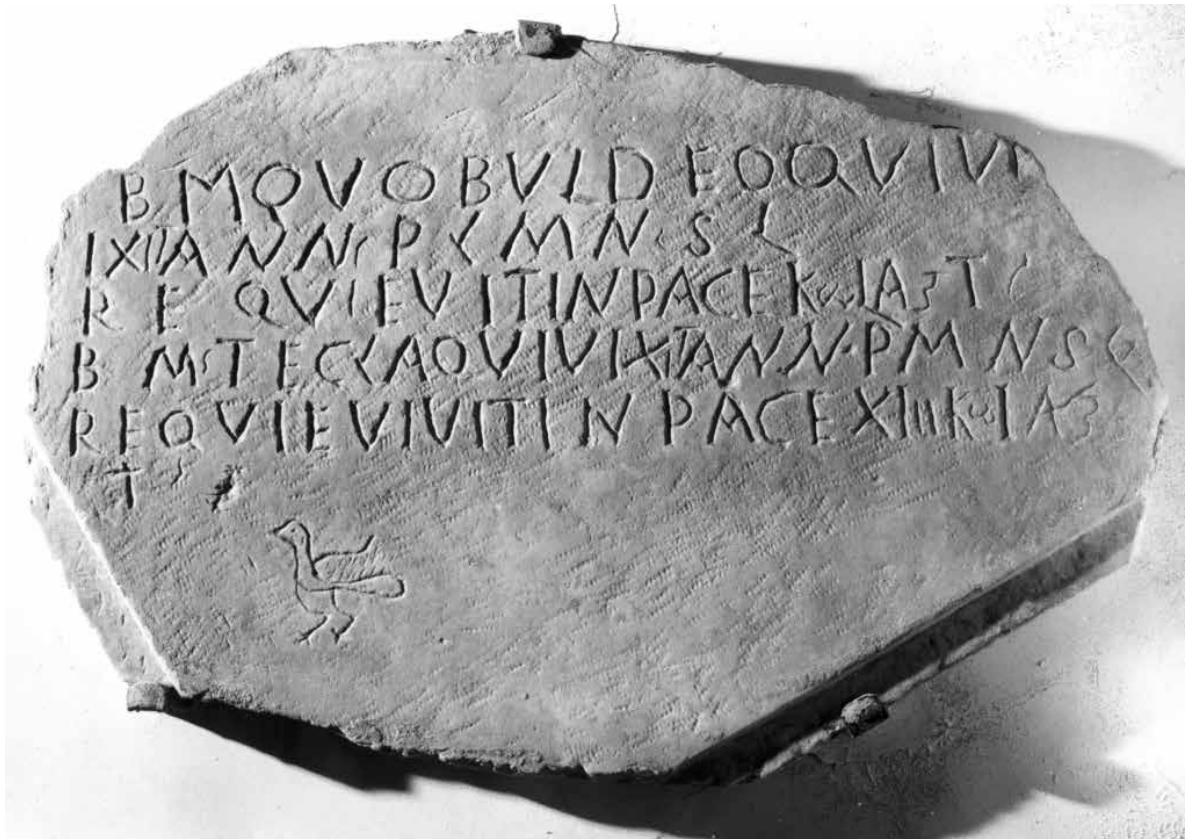 B M QUOBULDEO QUI VI
IXIT ANN P M N S L
REQUIEVIT IN PACE K IA
B M TECLA QUI VIXIT ANN P M N S
REQUIEVIVIT IN PACE XIIII K IA
T S